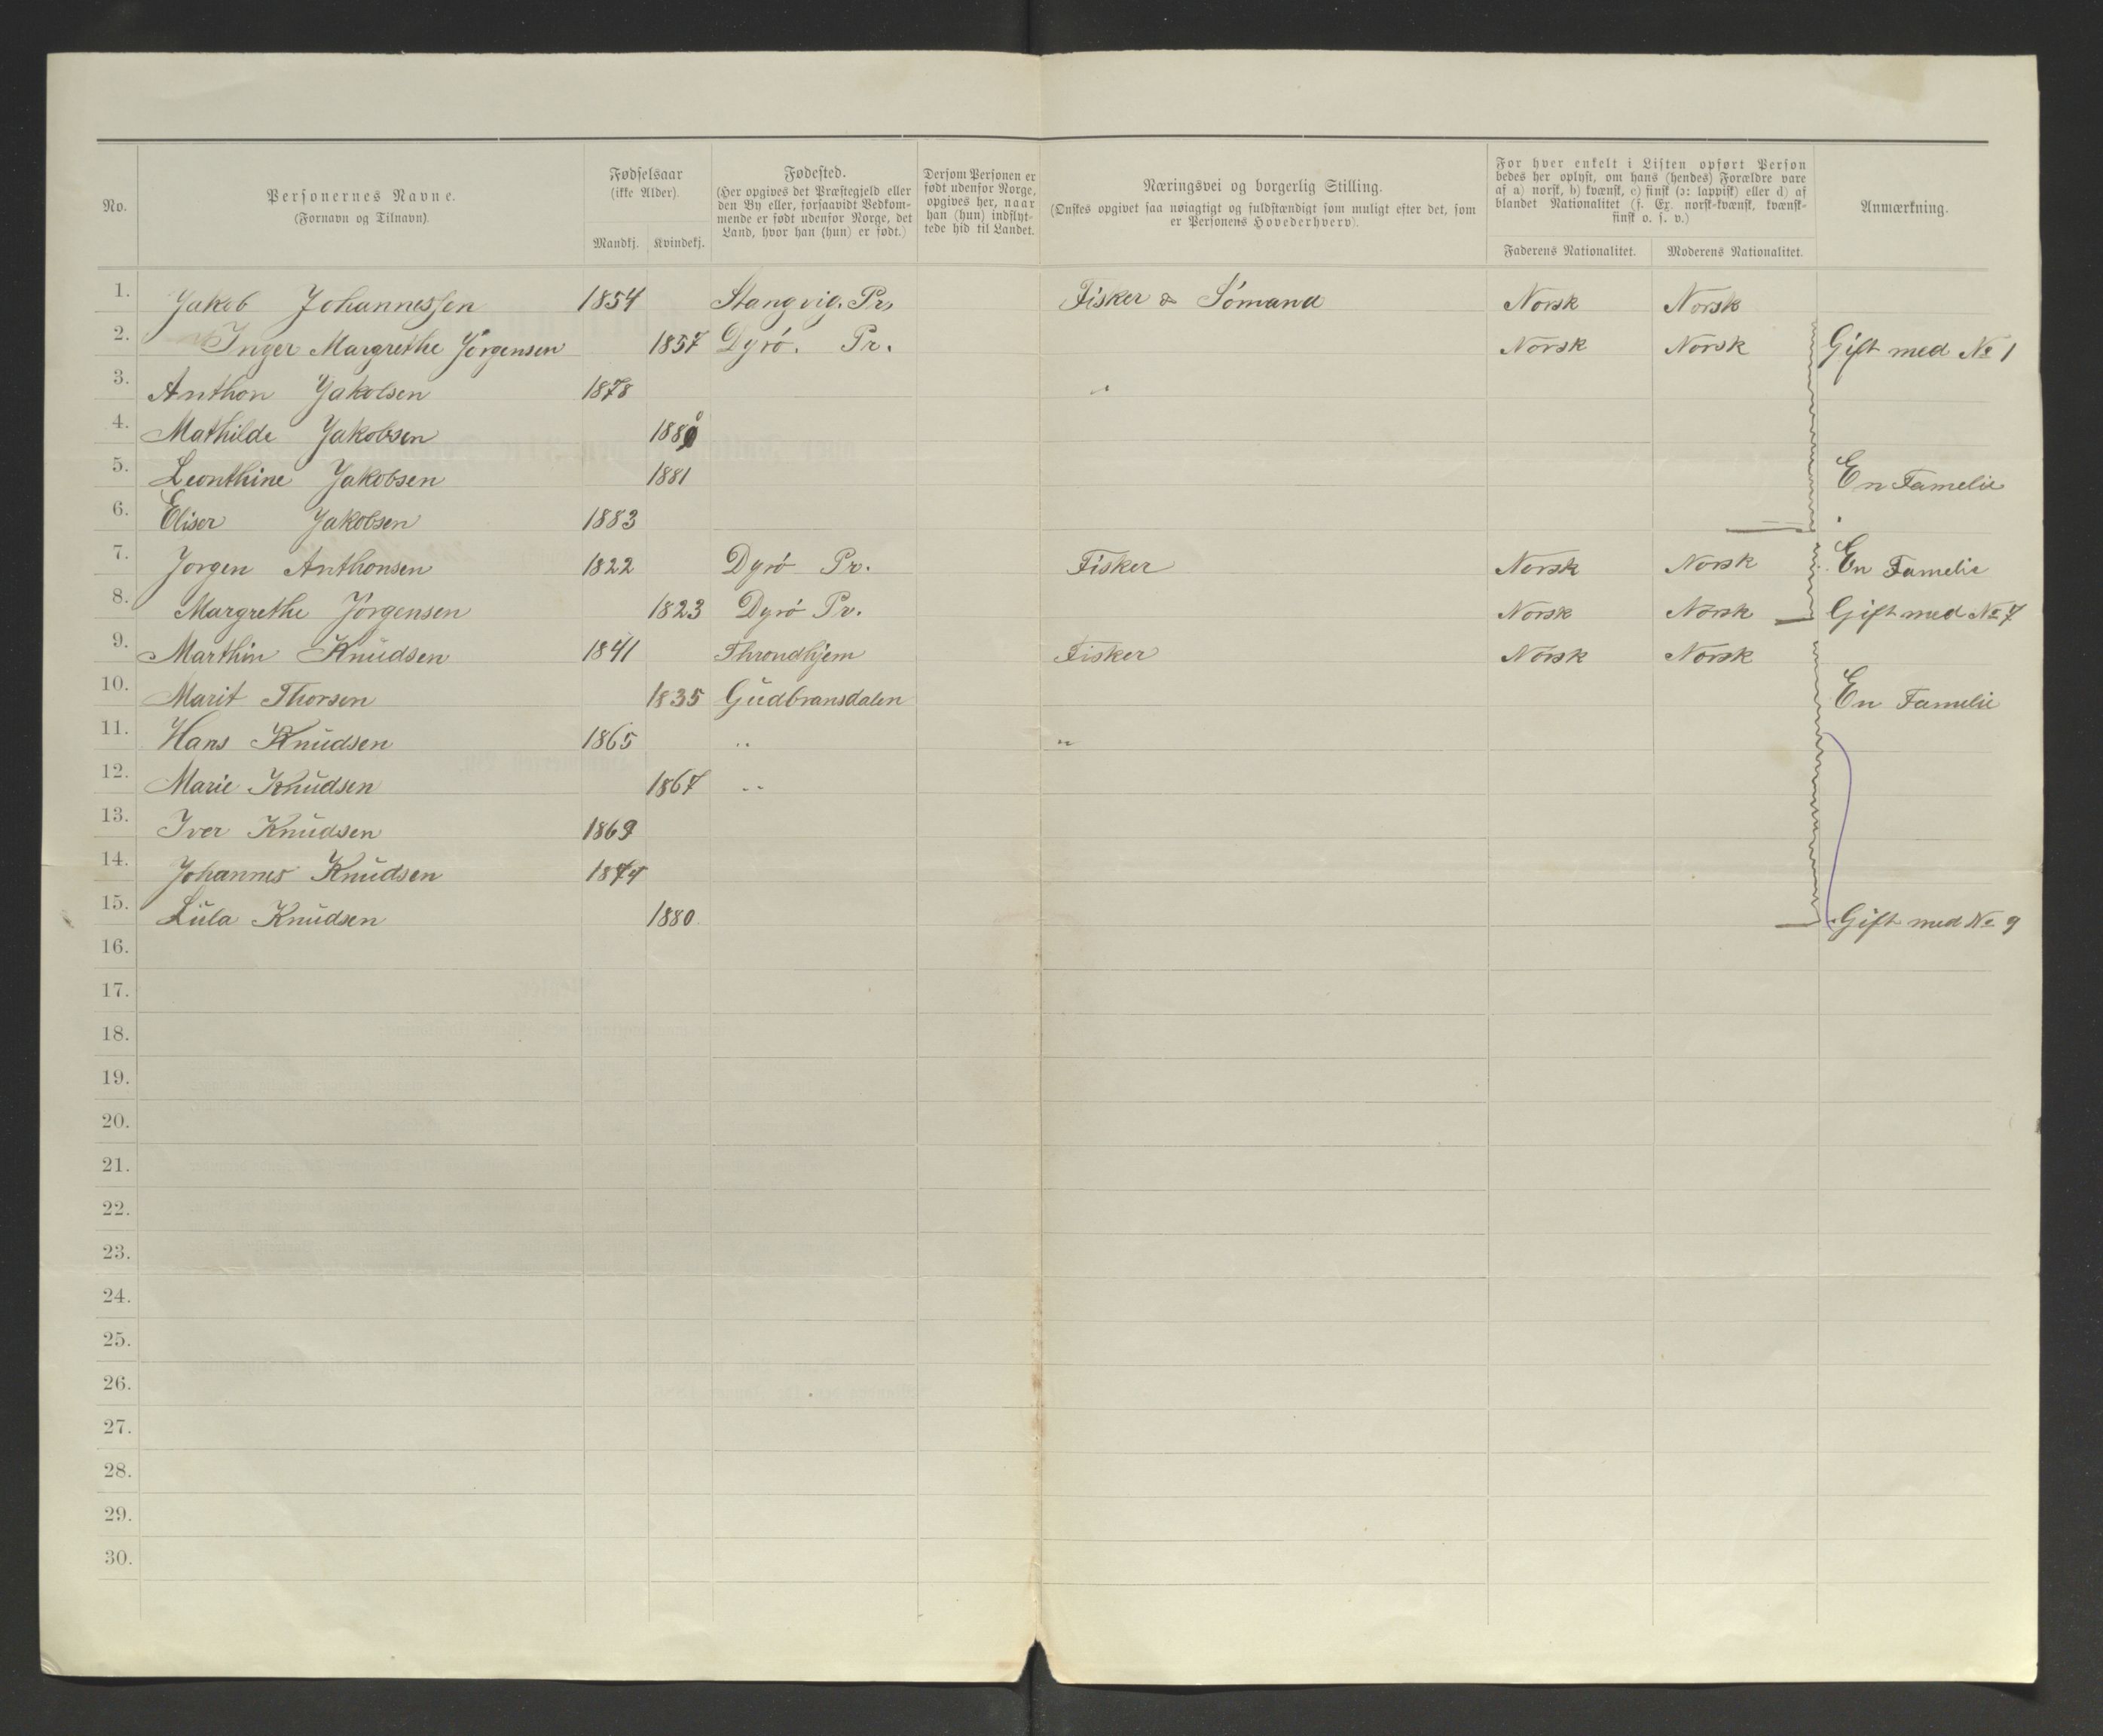 No.
Personernes Navne.
(Fornavn og Tilnavn).
Fødselsaar
(ikke Alder).
Mandkj. Kvindekj.
Fødested.
(Her opgives det Præstegjeld eller
den By eller, forsaavidt Vedkom-
mende er født udenfor Norge, det
Land, hvor han (hun) er født.)
Dersom Personen er
født udenfor Norge,
opgives her, naar
han (hun) indflyt-
tede hid til Landet.
Næringsvei og borgerlig Stilling.
(Ønskes opgivet saa nøiagtigt og fuldstændigt som muligt efter det, som
er Personens Hovederhverv).
For hver enkelt i Listen opført Person
bedes her oplyst, om hans (hendes) Forældre vare
af a) norsk, b) kvænsk, c) finsk (ɔ: lappisk) eller d) af
blandet Nationalitet (f. Ex. norsk-kvænsk, kvænsk-
finsk o. s. v.)
Faderens Nationalitet. Moderens Nationalitet.
Anmærkning.
1. Jakob Johannessen 1854 Stangvig. Pr, Fisker & Sömand Norsk Norsk
2. Inger Margrethe Jörgensen 1857 Dyrö. Pr. Norsk Norsk Gift med No 1
3. Anthon Jakobsen 1878 "
4. Mathilde Jakobsen 1880
5. Leonthine Jakobsen 1881 En Famelie
6. Eliser Jakobsen 1883
7. Jorgen Anthonsen 1822 Dyrö Pr. Fisker Norsk Norsk En Famelie
8. Margrethe Jörgensen 1823 Dyrö Pr. Norsk Norsk Gift med No 7
9. Marthin Knudsen 1841 Throndhjem Fisker Norsk Norsk
10. Marit Thorsen 1835 Gudbransdalen En Famelie
11. Hans Knudsen 1865 " "
12. Marie Knudsen 1867 "
13. Iver Knudsen 1869
14. Johannes Knudsen 1874
15. Lula Knudsen 1880. Gift med No 9
16.
17.
18.
19.
20.
21.
22.
23.
24.
25.
26.
27.
28.
29.
30.